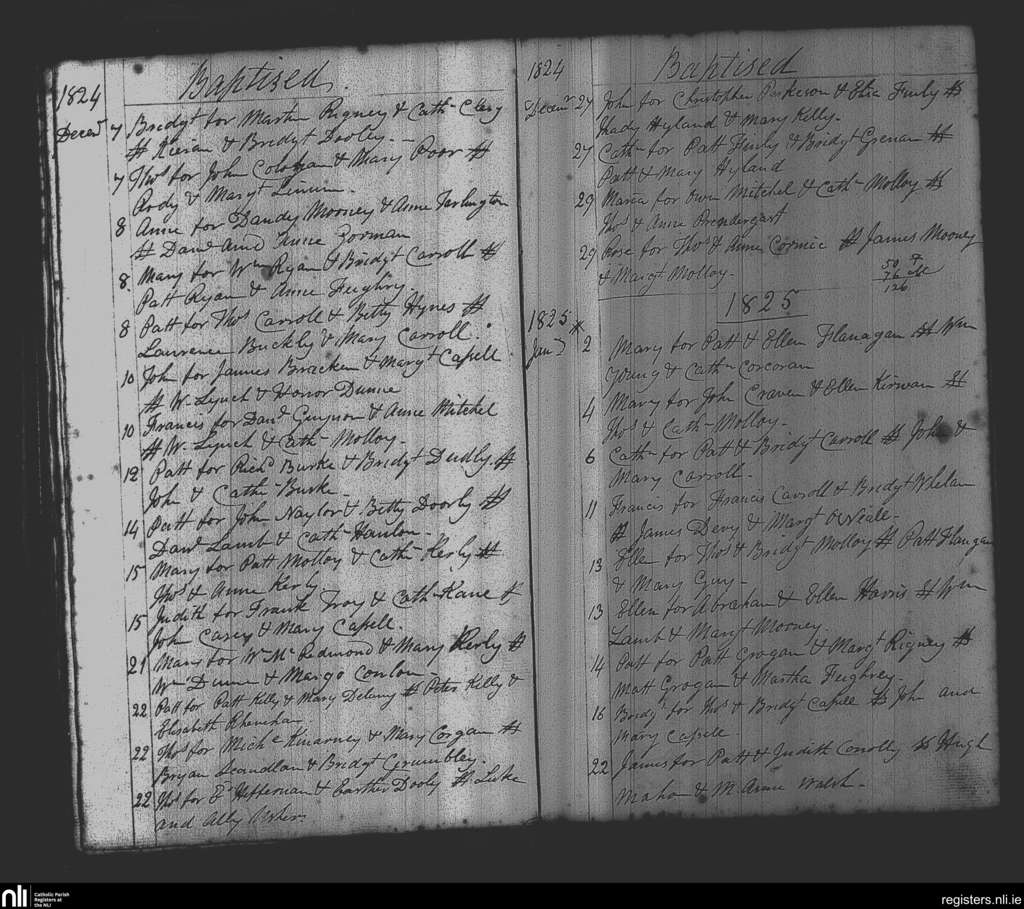 1824
Baptised
Decemr 7 Bridgt for Martin Rigney & Cath- Clery
# Kieran & Bridgt Dooley. -
7 Thos for John & Mary Poor #
Rody & Margt
8 Anne for Dandy Mooney & Anne Tarlington
# Danl and Anne Gorman
8 Mary for Wm Ryan & Bridgt Carroll #
Patt Ryan & Anne Feighry.
8 Patt for Thos Carroll & Betty Hynes #
Laurence Buckly & Mary Carroll.
10 John for James Bracken & Margt Capell
# W. Lynch & Honor Dunne
10 Francis for Danl Guynon & Anne Mitchel
# W. Lynch & Cath- Molloy.
12 Patt for Richd Burke & Bridgt Dudly #
John & Cathe- Burke.
14 Patt for John Naylor & Betty Doorly #
Danl Lamb & Cath- Hanlon.
15 Mary for Patt Molloy & Cath- Kerly #
Thos & Anne Kerly
15 Judith for Frank Troy & Cath- Kane #
John Casey & Mary Capell.
21 Mary for Wm McRedmond & Mary Kerly #
Wm Dunne & Margt Conlon
22 Patt for Patt Kelly & Mary Delany # Peter Kelly &
Elisabeth
22 Thos for Michl Kinarney & Mary Corgan #
Bryan Scandlan & Bridgt Grumbley.
22 Thos for & Dooly # Luke
and Ally
1824
Baptised
Decemr 27 John for Christopher & Eliza Finly #
Thady Hyland & Mary Kelly.
27 Cath- for Patt Finly & Bridgt Grenan #
Patt & Mary Hyland
29 Maria for Owen Mitchel & Cath- Molloy #
Thos & Anne Prendergast
29 Rose for Thos & Anne Cormic # James Mooney
& Margt Molloy.
50 F
76 M
126
1825
1825
Jany 2 Mary for Patt & Ellen Flanagan # Wm
Young & Cath- Corcoran
4 Mary for John Craven & Ellen Kirwan #
Thos & Cath- Molloy.
6 Cath- for Patt & Bridgt Carroll # John &
Mary Carroll.
11 Francis for Francis Carroll & Bridgt Whelan
# James Devy & Margt O Neale.
13 Ellen for Thos & Bridgt Molloy # Patt Flanagan
& Mary Guy.
13 Ellen for Abraham & Ellen Harris # Wm
Lamb & Margt Mooney.
14 Patt for Patt Grogan & Margt Rigney #
Matt Grogan & Martha Feighrey.
16 Bridgt for Thos & Bridgt Capell # John and
Mary Capell.
22 James for Patt & Judith Conolly # Hugh
Mahon & M Anne Walsh.
nli
Catholic Parish
Registers at
the NLI
registers.nli.ie